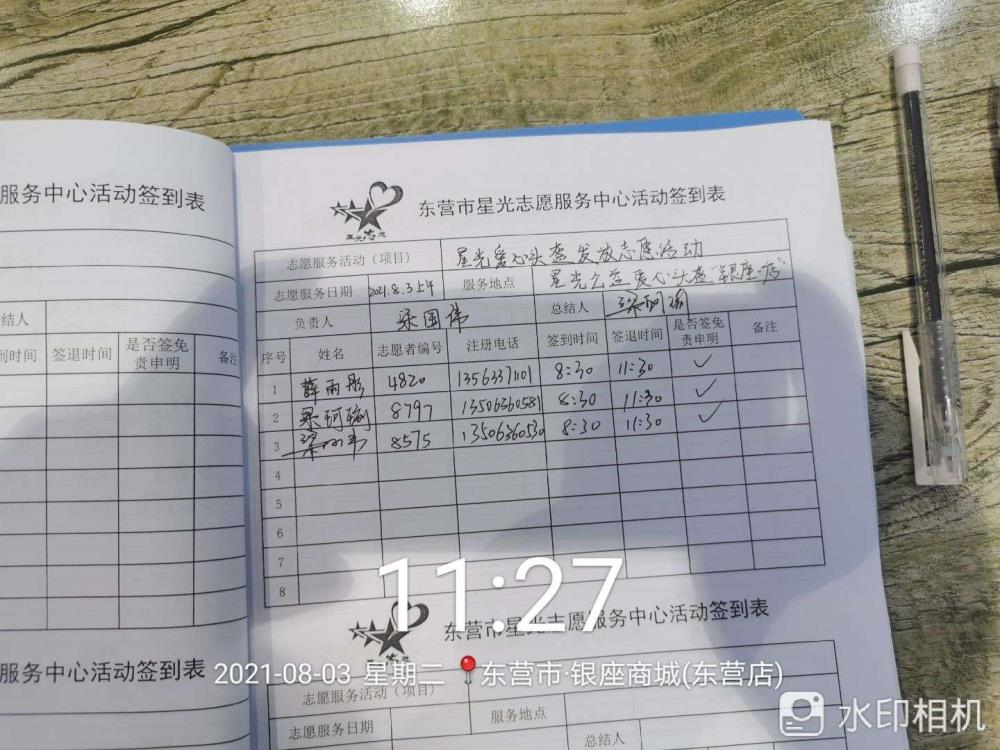 服务中心活动签到表
结人
到时间 签退时间 是否签免责申明 备注
东营市星光志愿服务中心活动签到表
志愿服务活动（项目） 星光爱心头盔发放志愿活动
志愿服务日期 2021.8.3上午 服务地点 星光公益爱心头盔"银座店"
负责人 梁国伟 总结人 梁珂瑜
序号 姓名 志愿者编号 注册电话 签到时间 签退时间 是否签免责申明 备注
1 薛雨彤 4820 13563371101 8:30 11:30 ✓
2 梁珂瑜 8797 13506360581 8:30 11:30 ✓
3 8575 13506360530 8:30 11:30 ✓
4
5
6
7
8
11:27
服务中心活动签到表
东营市星光志愿服务中心活动签到表
2021-08-03 星期二 东营市·银座商城(东营店)
志愿服务活动（项目）
志愿服务日期 服务地点
总结人
水印相机